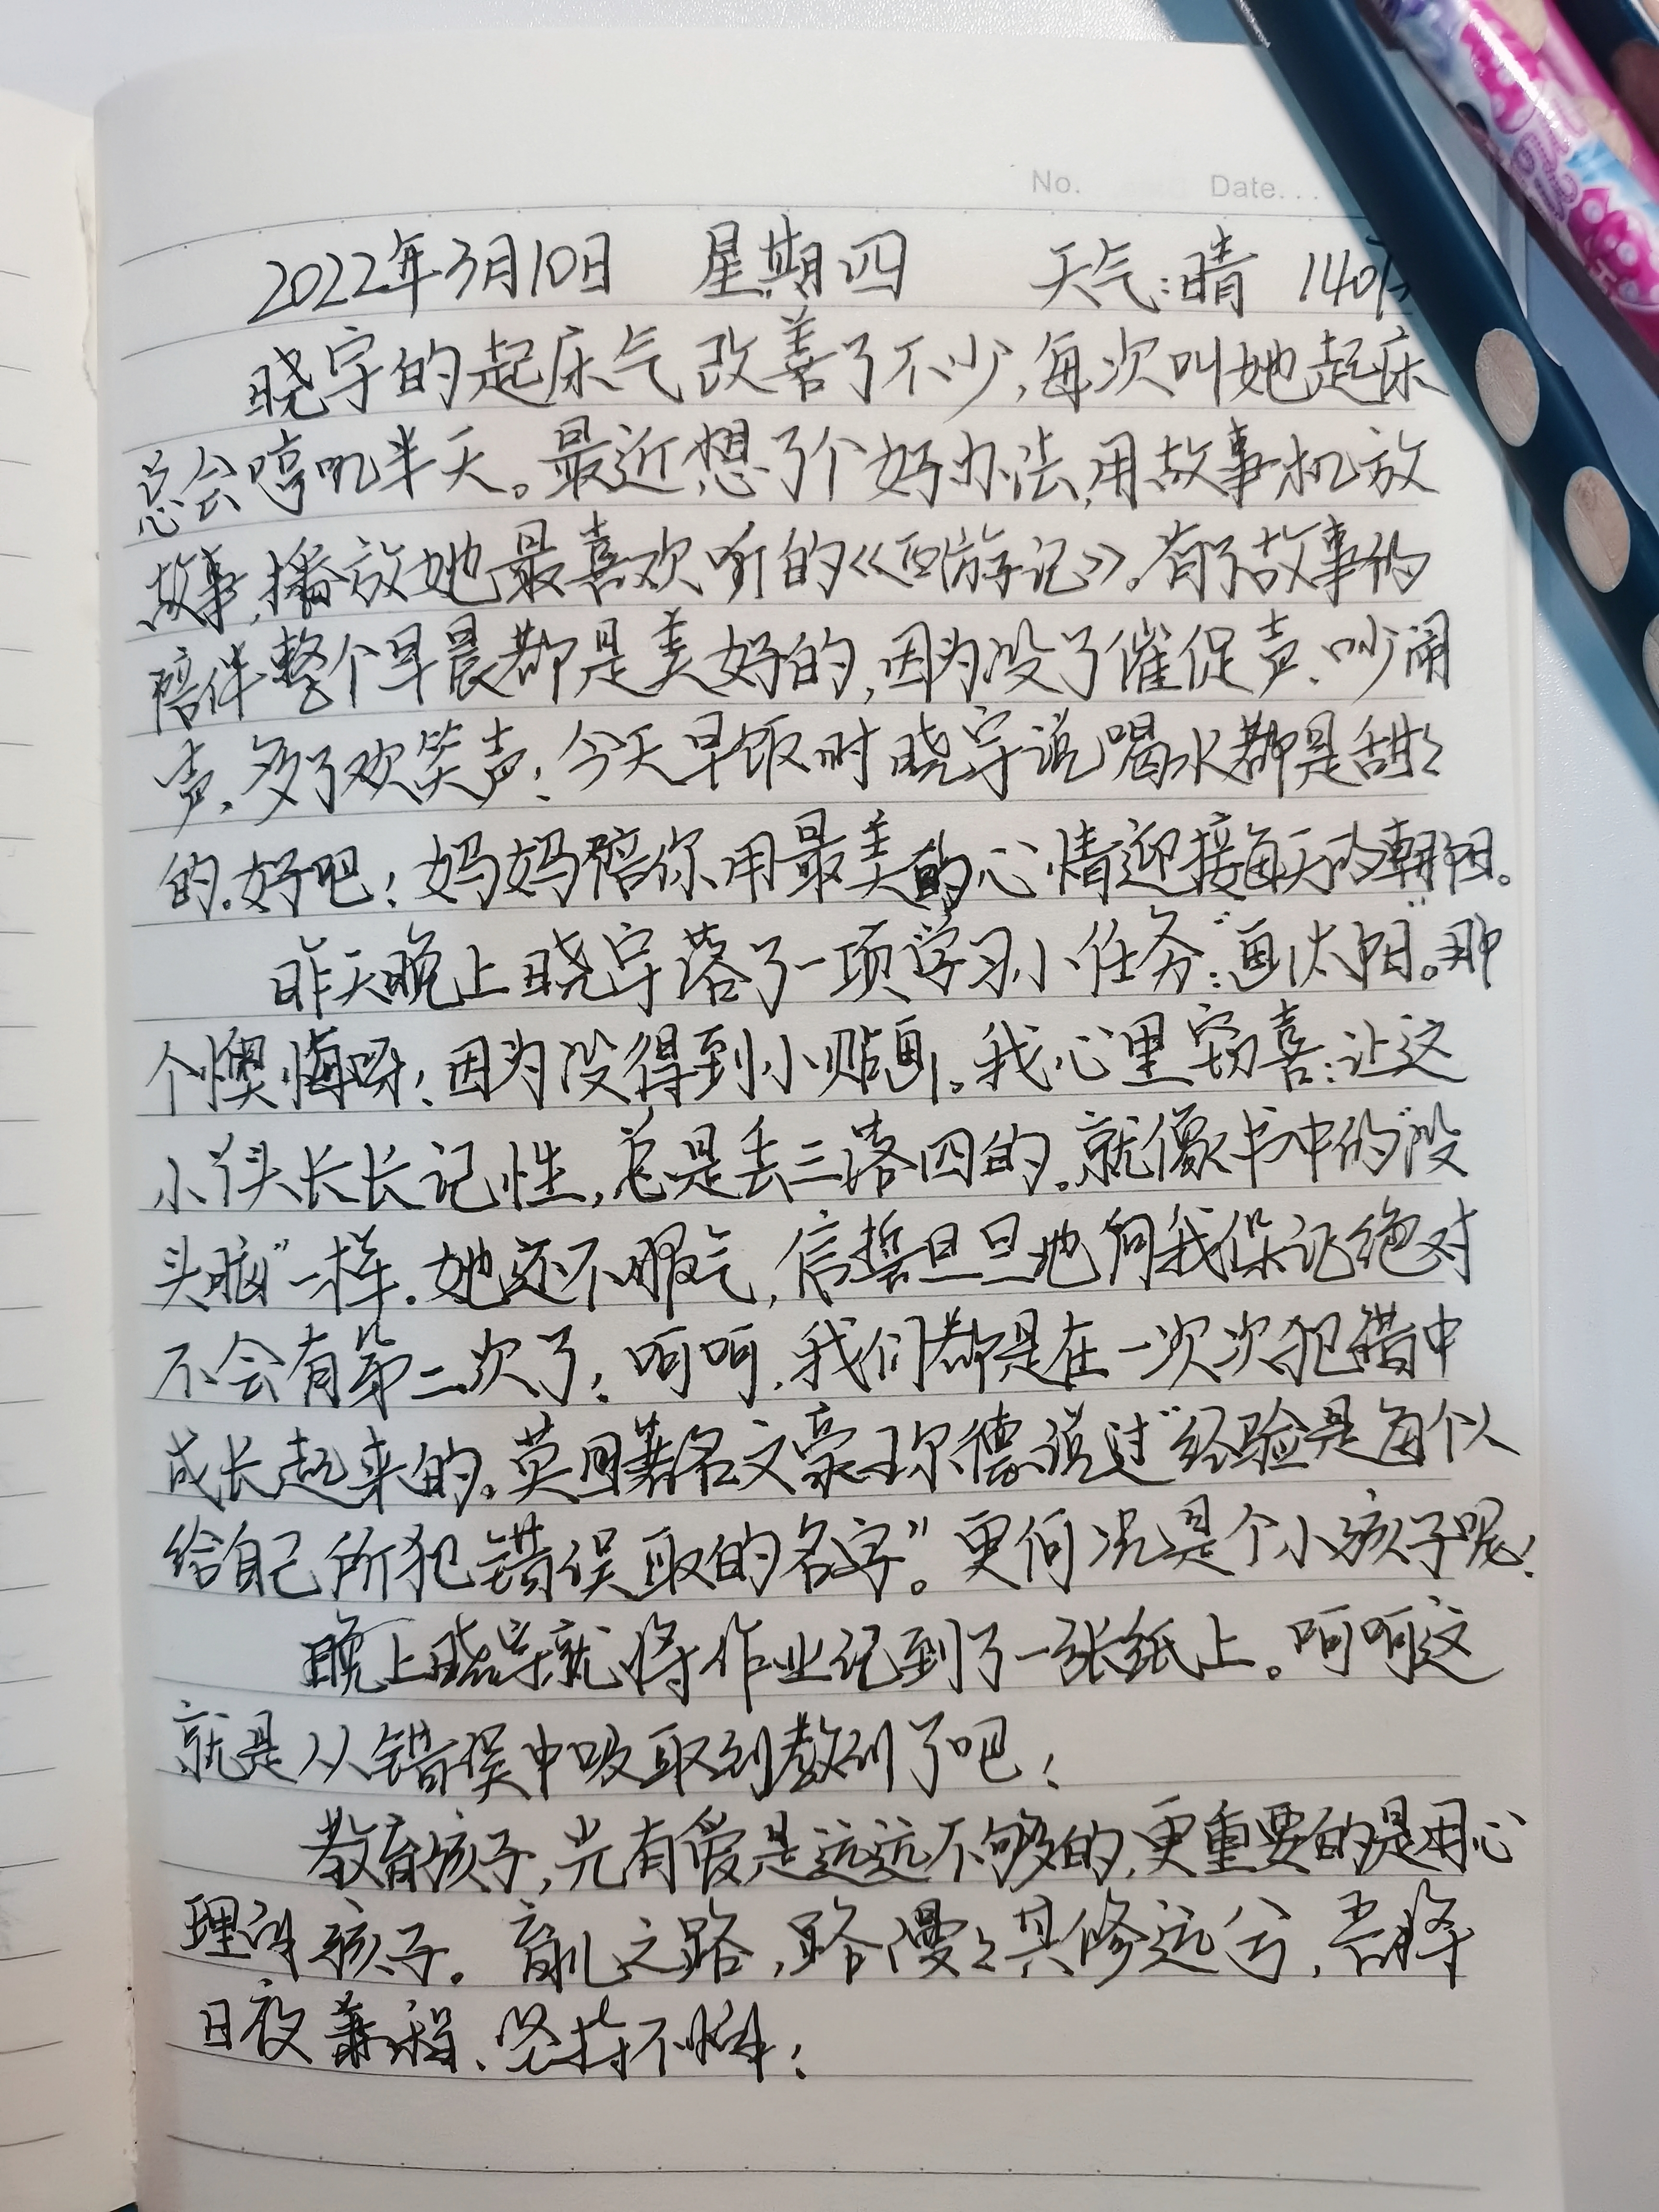 No. Date...
2022年3月10日 星期四 天气:晴 140
晓宇的起床气改善了不少,每次叫她起床
总会哼叽半天。最近想了个好办法,用故事机放
故事,播放她最喜欢听的《西游记》。有了故事的
陪伴整个早晨都是美好的,因为没了催促声、吵闹
声,多了欢笑声!今天早饭时晓宇说喝水都是甜々
的。好吧!妈妈陪你用最美的心情迎接每天的朝阳。
昨天晚上晓宇落了一项学习小任务:“画太阳”。那
个懊悔呀!因为没得到小贴画。我心里窃喜:让这
小丫头长长记性,总是丢三落四的。就像书中的“没
头脑”一样。她还不服气,信誓旦旦地向我保证绝对
不会有第二次了!呵呵,我们都是在一次次犯错中
成长起来的。英国著名文豪王尔德说过“经验是每个人
给自己所犯错误取的名字”。更何况是个小孩子呢!
晚上晓宇就将作业记到了一张纸上。呵呵这
就是从错误中吸取到教训了吧!
教育孩子,光有爱是远远不够的,更重要的是用心
理解孩子。育儿之路,路漫々其修远兮,吾将
日夜兼程、坚持不懈!